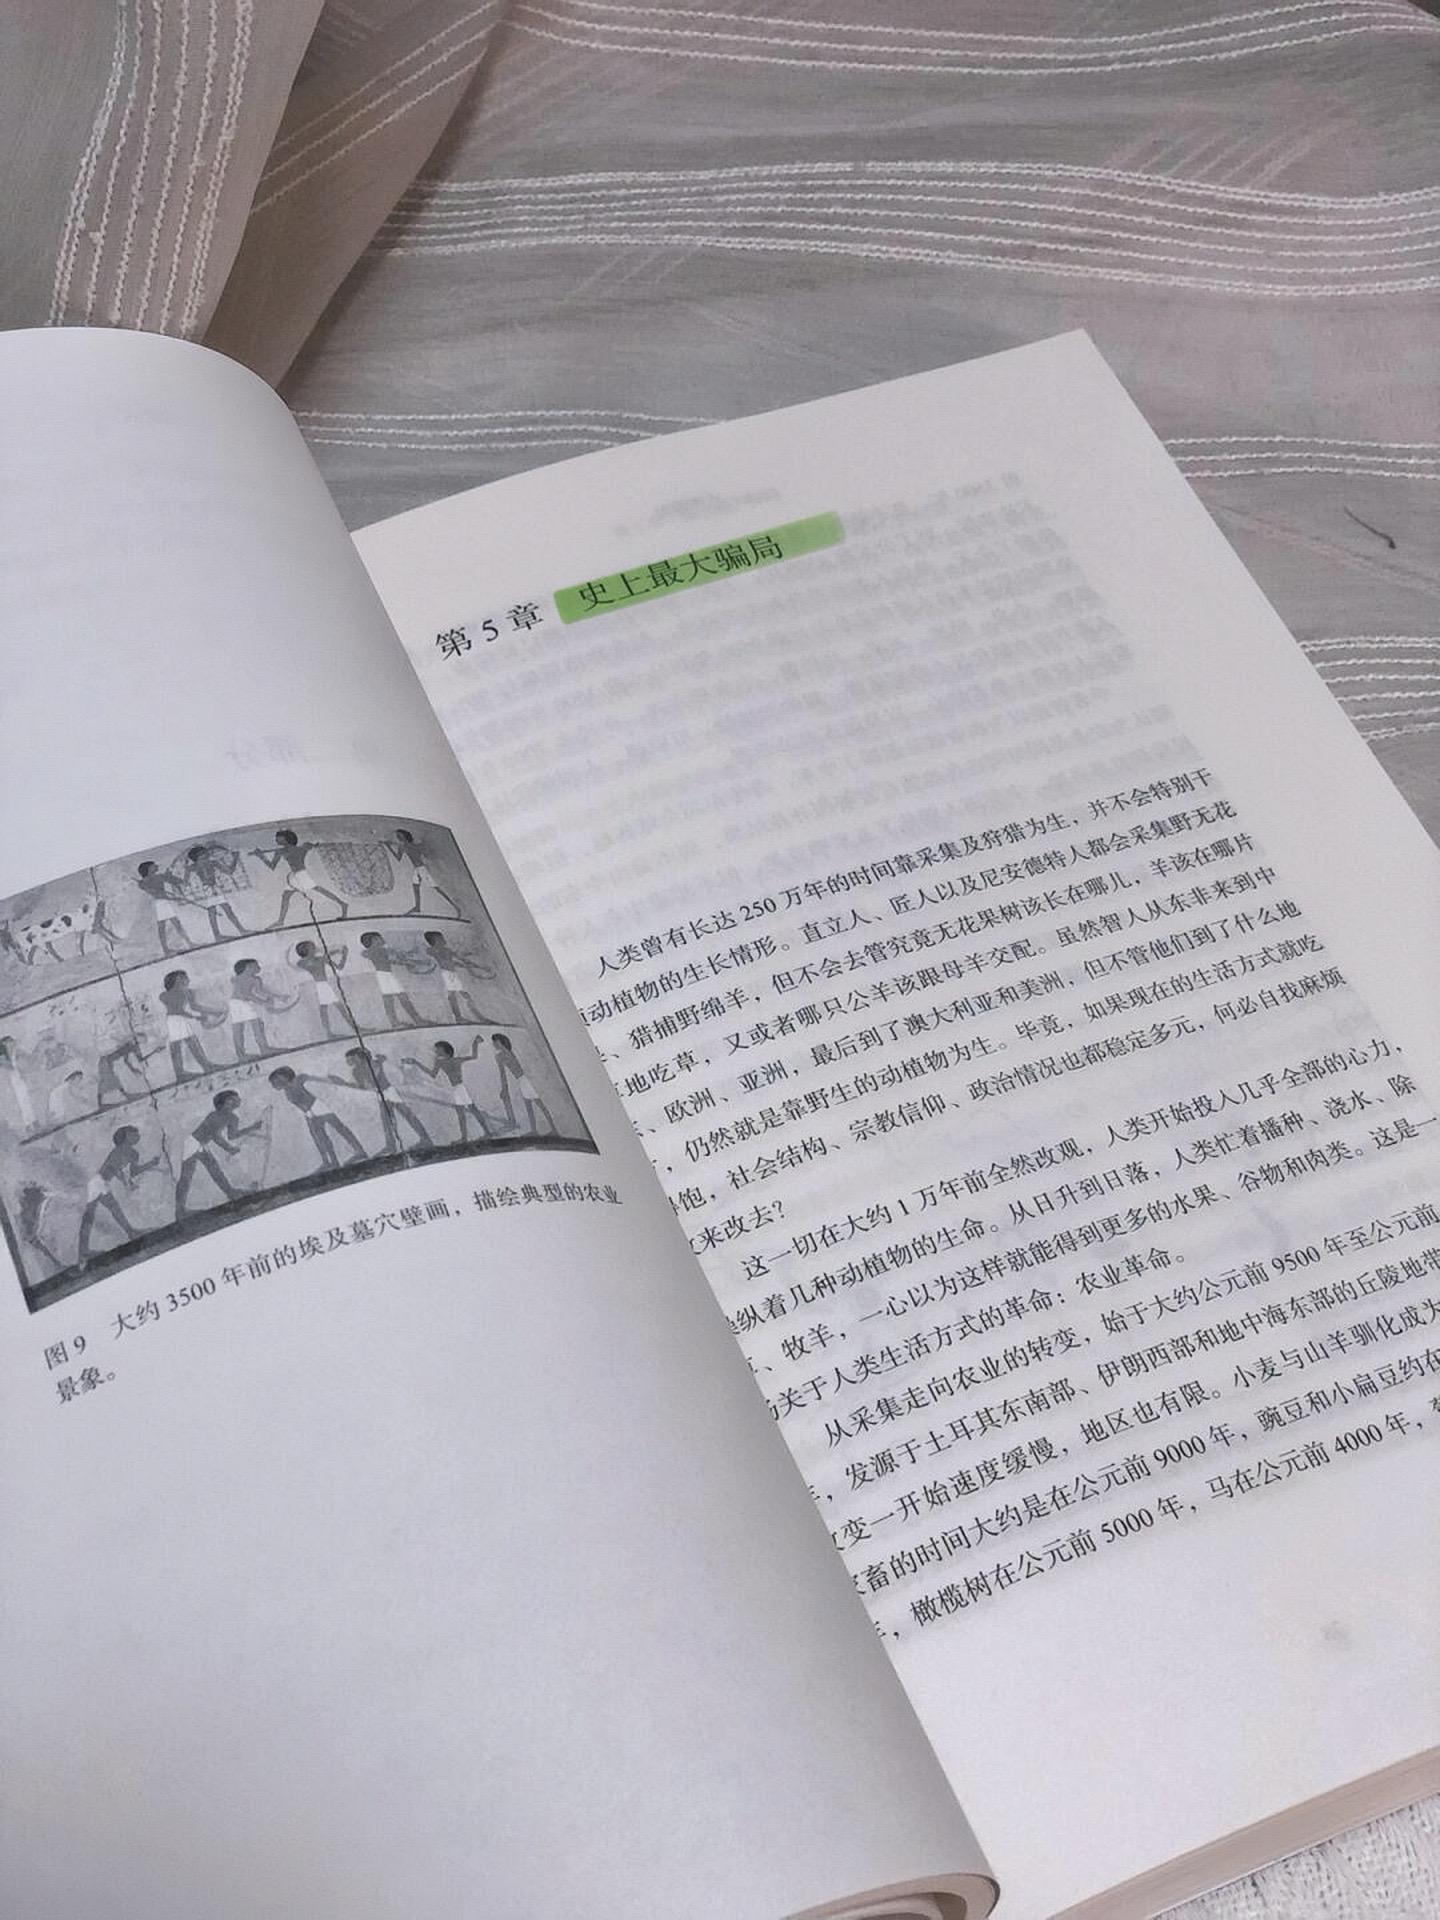 图9 大约 3500 年前的埃及墓穴壁画，描绘典型的农业
景象。
第 5 章 史上最大骗局
人类曾有长达 250 万年的时间靠采集及狩猎为生，并不会特别干
动植物的生长情形。直立人、匠人以及尼安德特人都会采集野无花
、猎捕野绵羊，但不会去管究竟无花果树该长在哪儿，羊该在哪片
地吃草，又或者哪只公羊该跟母羊交配。虽然智人从东非来到中
、欧洲、亚洲，最后到了澳大利亚和美洲，但不管他们到了什么地
，仍然就是靠野生的动植物为生。毕竟，如果现在的生活方式就吃
饱，社会结构、宗教信仰、政治情况也都稳定多元，何必自找麻烦
来改去？
这一切在大约 1 万年前全然改观，人类开始投入几乎全部的心力，
纵着几种动植物的生命。从日升到日落，人类忙着播种、浇水、除
、牧羊，一心以为这样就能得到更多的水果、谷物和肉类。这是一
关于人类生活方式的革命：农业革命。
从采集走向农业的转变，始于大约公元前 9500 年至公元前
，发源于土耳其东南部、伊朗西部和地中海东部的丘陵地带
变一开始速度缓慢，地区也有限。小麦与山羊驯化成为
畜的时间大约是在公元前 9000 年，豌豆和小扁豆约在
，橄榄树在公元前 5000 年，马在公元前 4000 年，